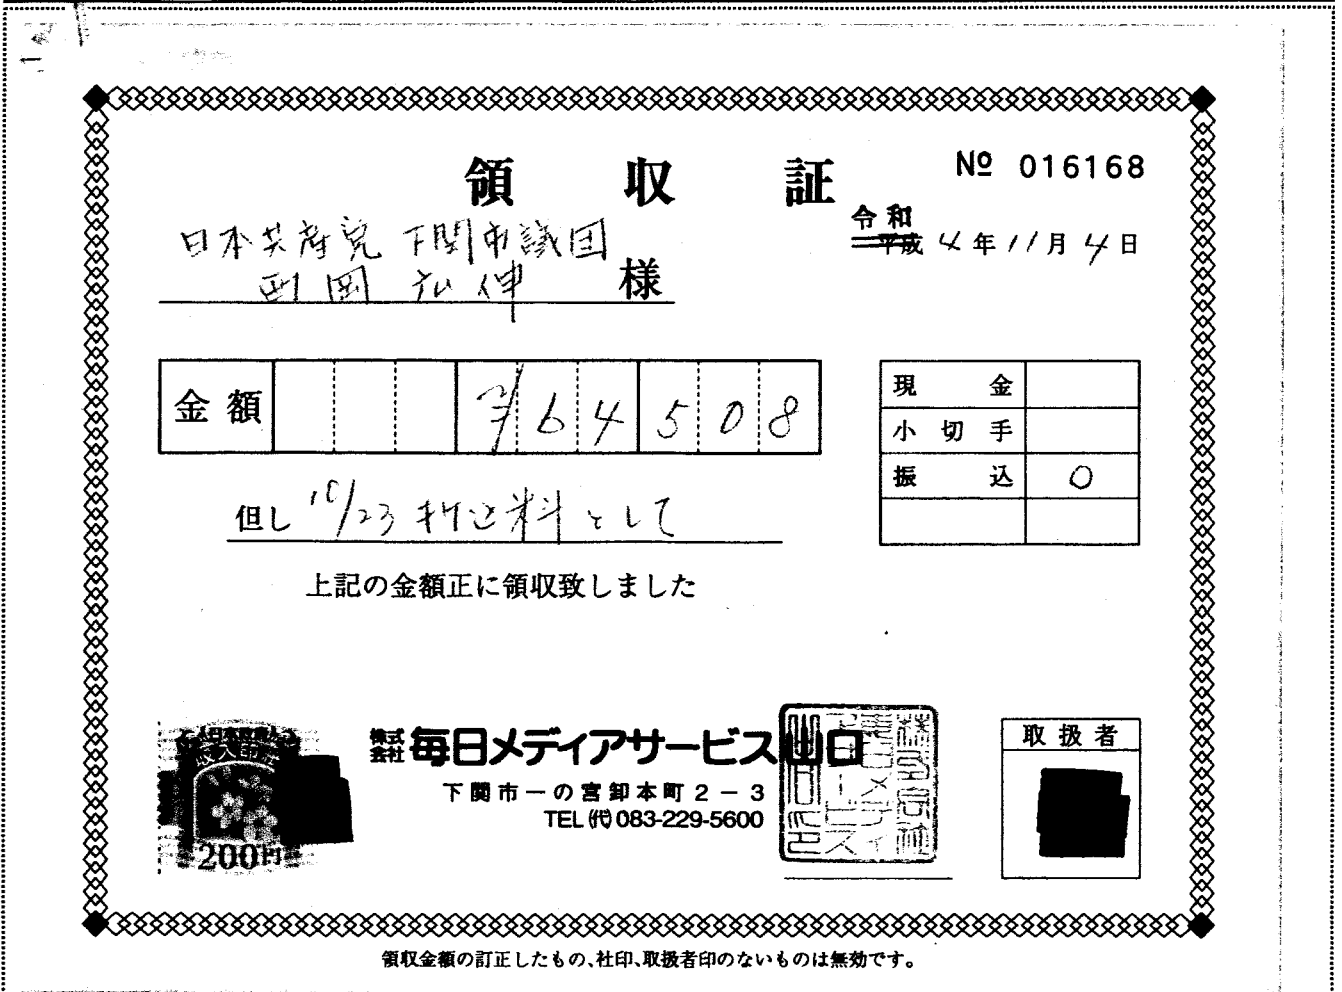 領収証
№ 016168
令和
平成 4年11月4日
日本共産党 下関市議団
西岡 広伸 様
金額 ¥64508
現金
小切手
振込 ○
但し 10/23 折込料として
上記の金額正に領収致しました
200円
株式会社 毎日メディアサービス山口
下関市一の宮卸本町2-3
TEL(代)083-229-5600
取扱者
領収金額の訂正したもの、社印、取扱者印のないものは無効です。